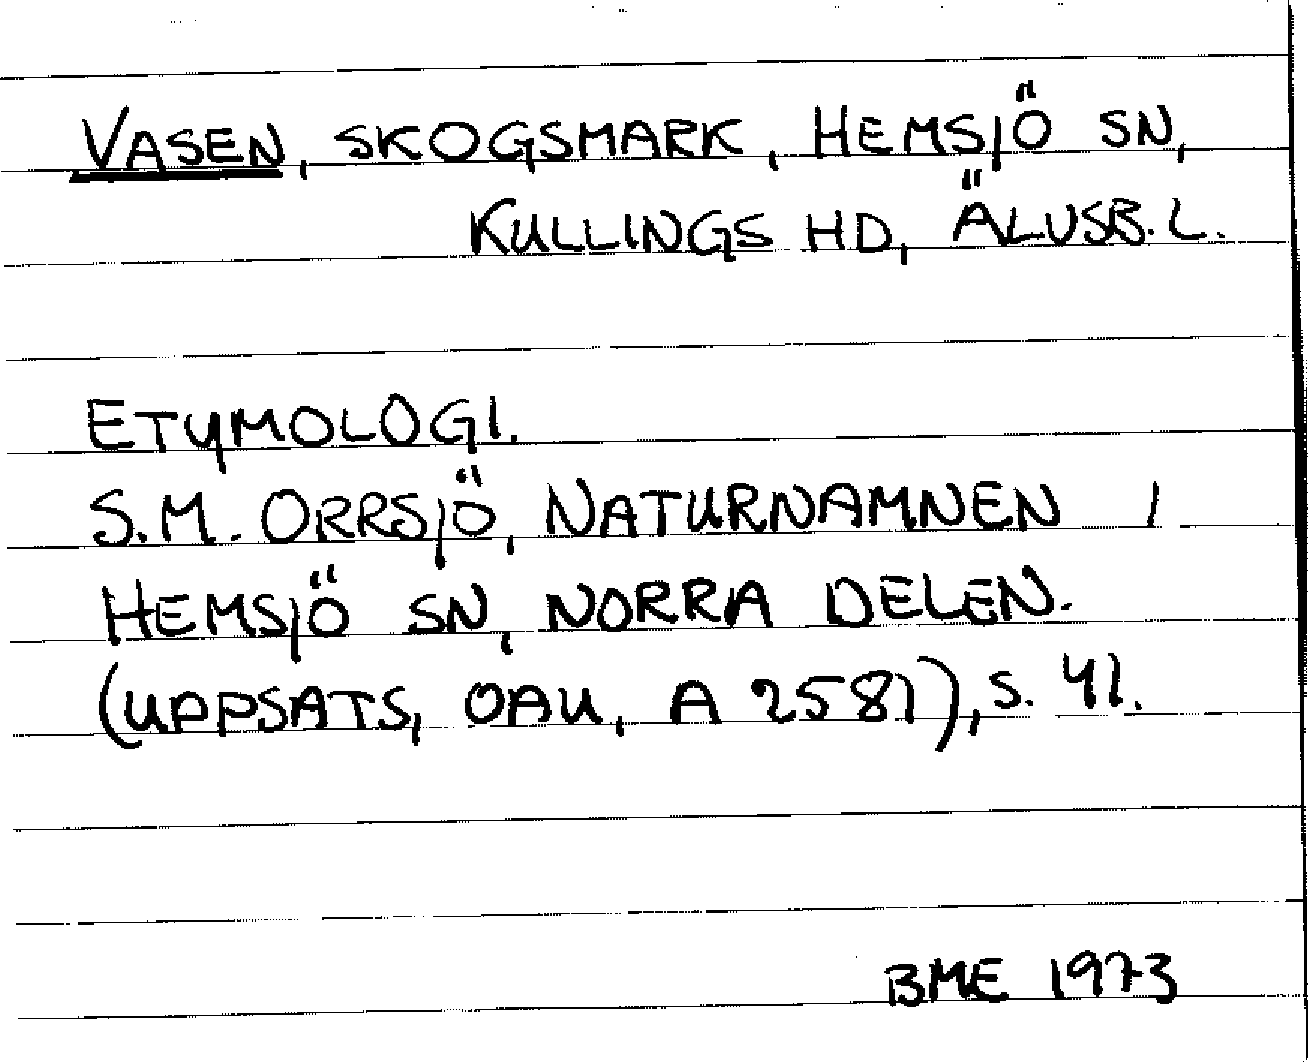 VASEN, SKOGSMARK, HEMSJÖ SN,
KULLINGS HD, ÄLVSB. L.
ETYMOLOGI.
S.M. ORRSJÖ, NATURNAMNEN I
HEMSJÖ SN, NORRA DELEN.
(UPPSATS, OAU, A 2587), S. 41.
BME 1973